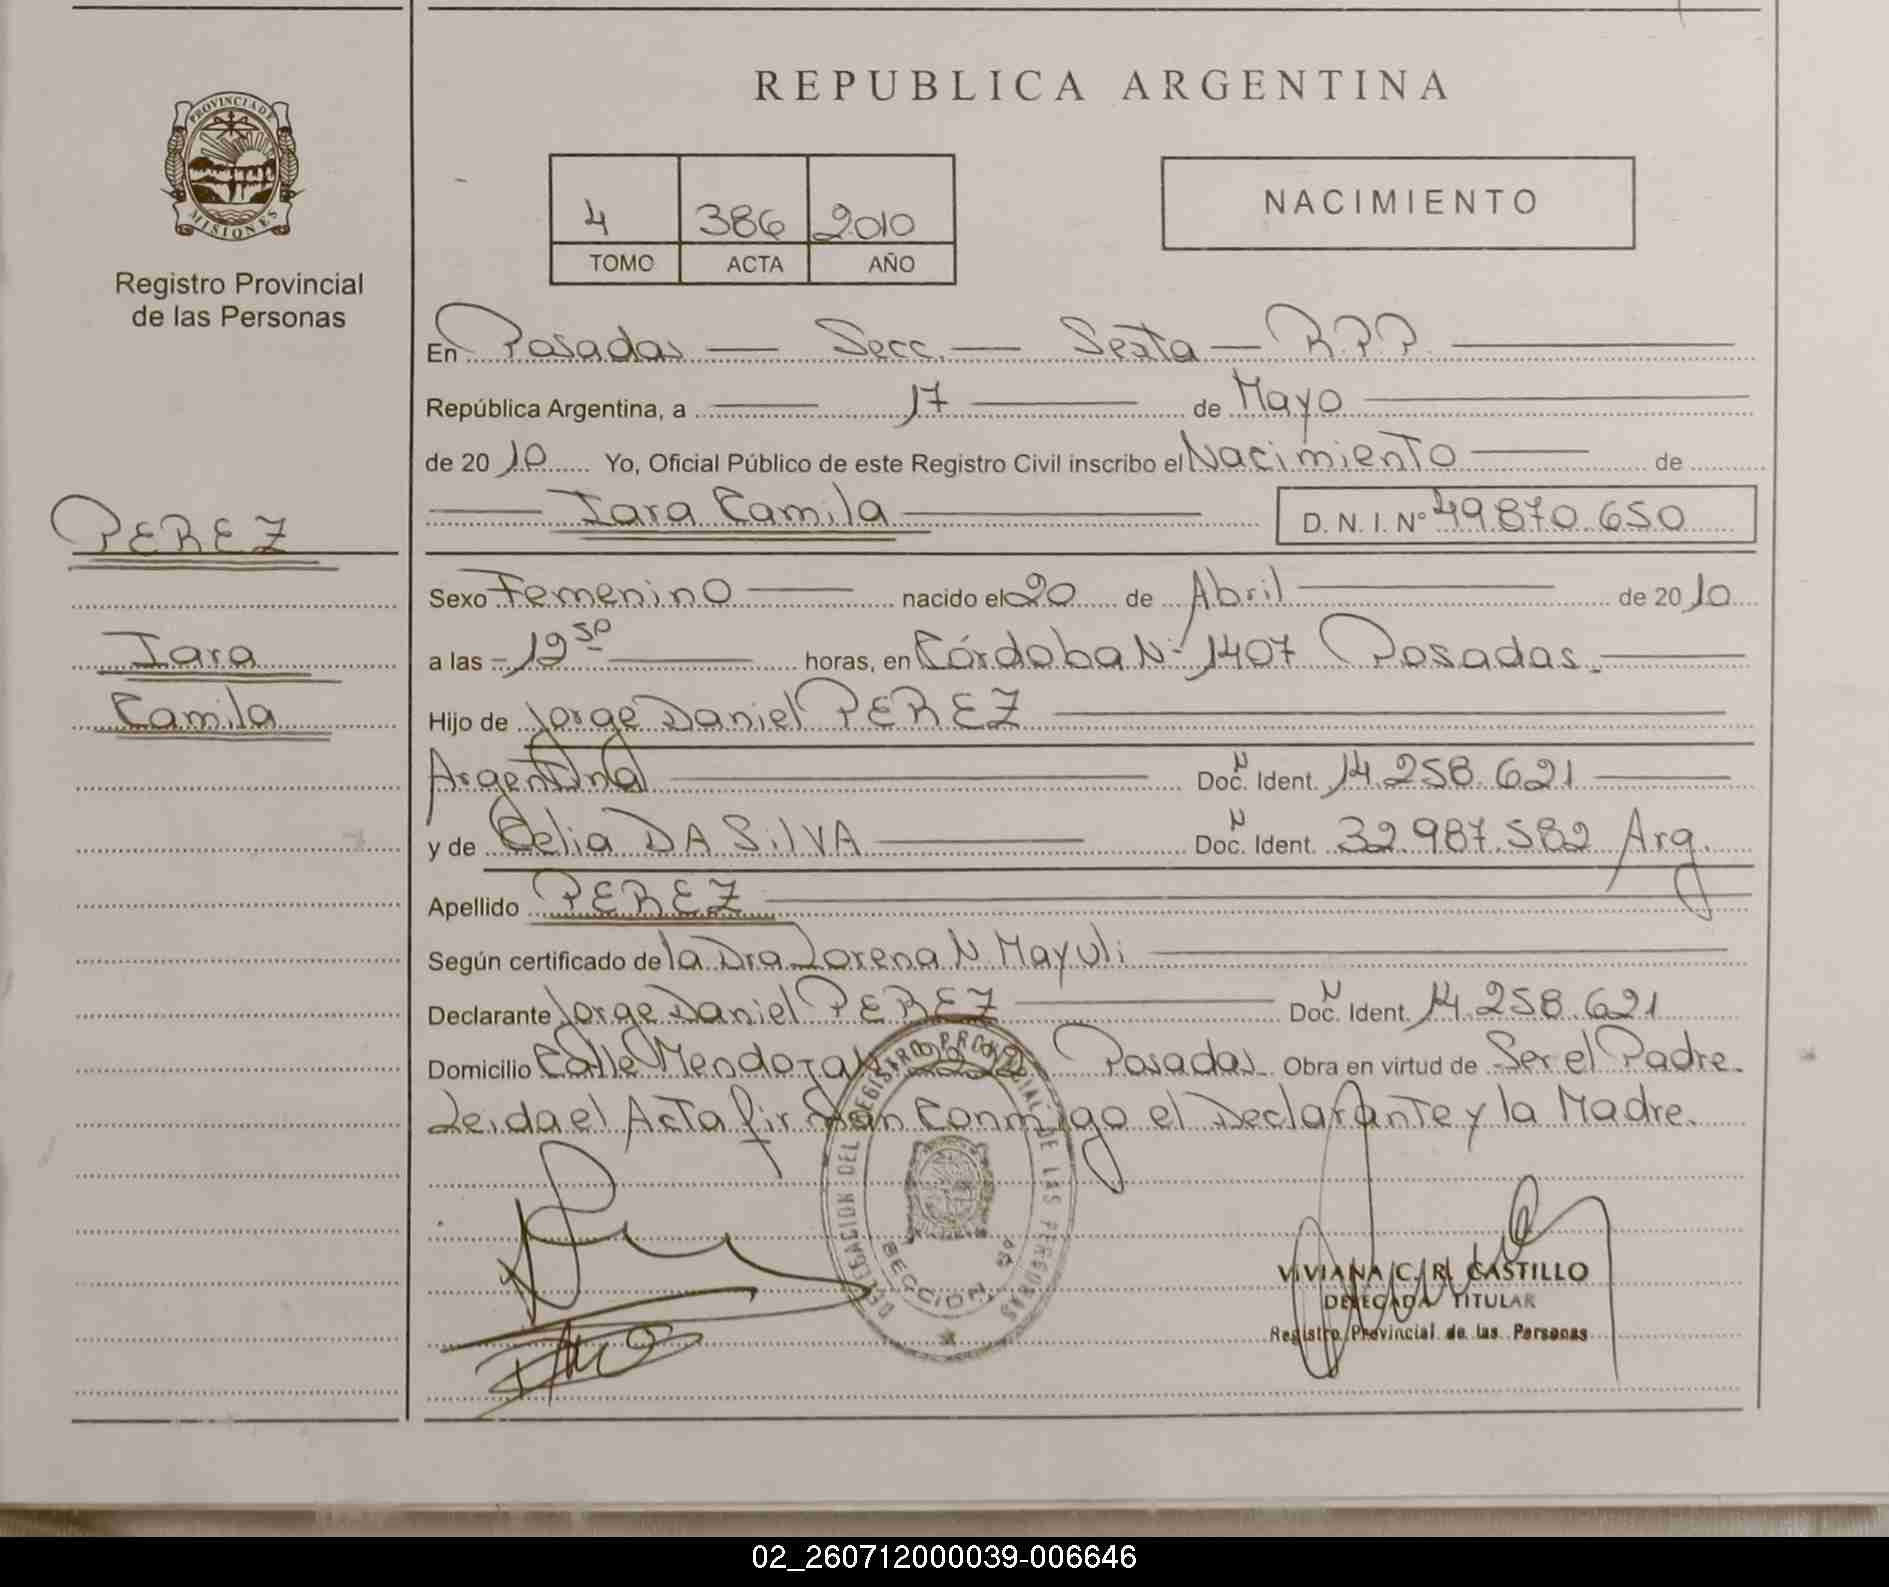 REPUBLICA ARGENTINA
PROVINCIA DE
MISIONES
Registro Provincial
de las Personas
4 386 2010
TOMO ACTA AÑO
NACIMIENTO
PEREZ
Iara
Camila
En Posadas — Secc. — Sexta — R.P.P.
República Argentina, a 17 de Mayo
de 20 10 Yo, Oficial Público de este Registro Civil inscribo el Nacimiento de
Iara Camila D. N. I. Nº 49.870.650
Sexo Femenino nacido el 20 de Abril de 20 10
a las - 19 50 horas, en Córdoba Nº 1407 Posadas.
Hijo de Jorge Daniel PEREZ
Argentina Doc. N Ident. 14.258.621
y de Celia DA SilVA Doc. N Ident. 32.987.582 Arg.
Apellido PEREZ
Según certificado de la Dra Lorena N. Mayuli
Declarante Jorge Daniel PEREZ Doc. N Ident. 14.258.621
Domicilio Calle Mendoza Posadas. Obra en virtud de Ser el Padre.
Leida el Acta firman Conmigo el Declarante y la Madre.
DELEGACION DEL REGISTRO PROVINCIAL DE LAS PERSONAS
SECCION
VIVIANA C. R. CASTILLO
DELEGADA TITULAR
Registro Provincial de las Personas
02_260712000039-006646